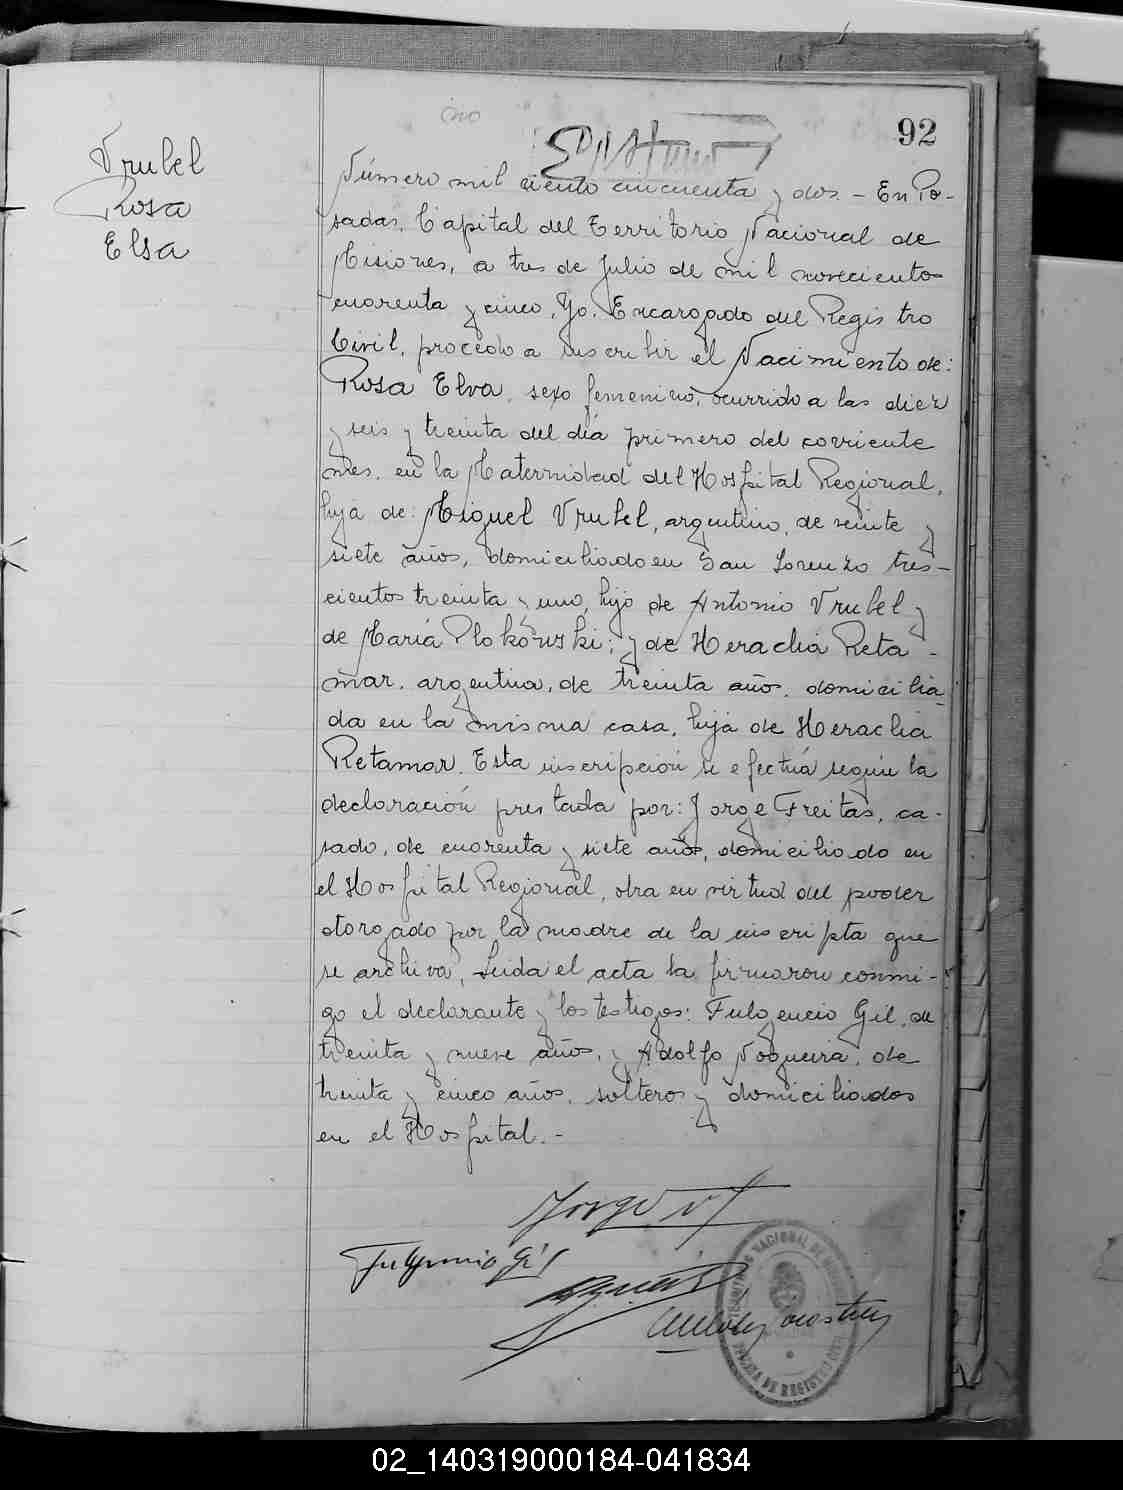 92
Vrubel
Rosa
Elsa
Número mil ciento cincuenta y dos. - En Po-
sadas, Capital del Territorio Nacional de
Misiones, a tres de Julio de mil novecientos
cuarenta y cinco, Yo, Encargado del Registro
Civil, procedo a inscribir el Nacimiento de:
Rosa Elva, sexo femenino, ocurrido a las diez
y seis y treinta del día primero del corriente
mes, en la Maternidad del Hospital Regional,
hija de: Miguel Vrubel, argentino, de veinte y
siete años, domiciliado en San Lorenzo tres-
cientos treinta y uno, hijo de Antonio Vrubel y
de María Plokóuski; y de Heraclia Reta-
mar, argentina, de treinta años, domicilia-
da en la misma casa, hija de Heraclia
Retamar. Esta inscripción se efectúa según la
declaración prestada por: Jorge Freitas, ca-
sado, de cuarenta y siete años, domiciliado en
el Hospital Regional, obra en virtud del poder
otorgado por la madre de la inscripta que
se archiva, Leida el acta la firmaron conmi-
go el declarante y los testigos: Fulgencio Gil, de
treinta y nueve años, y Adolfo Nogueira, de
treinta y cinco años, solteros y domiciliados
en el Hospital. -
Jorge
Fulgencio Gil
NACIONAL DE
DE REGISTRO CIVIL
02_140319000184-041834